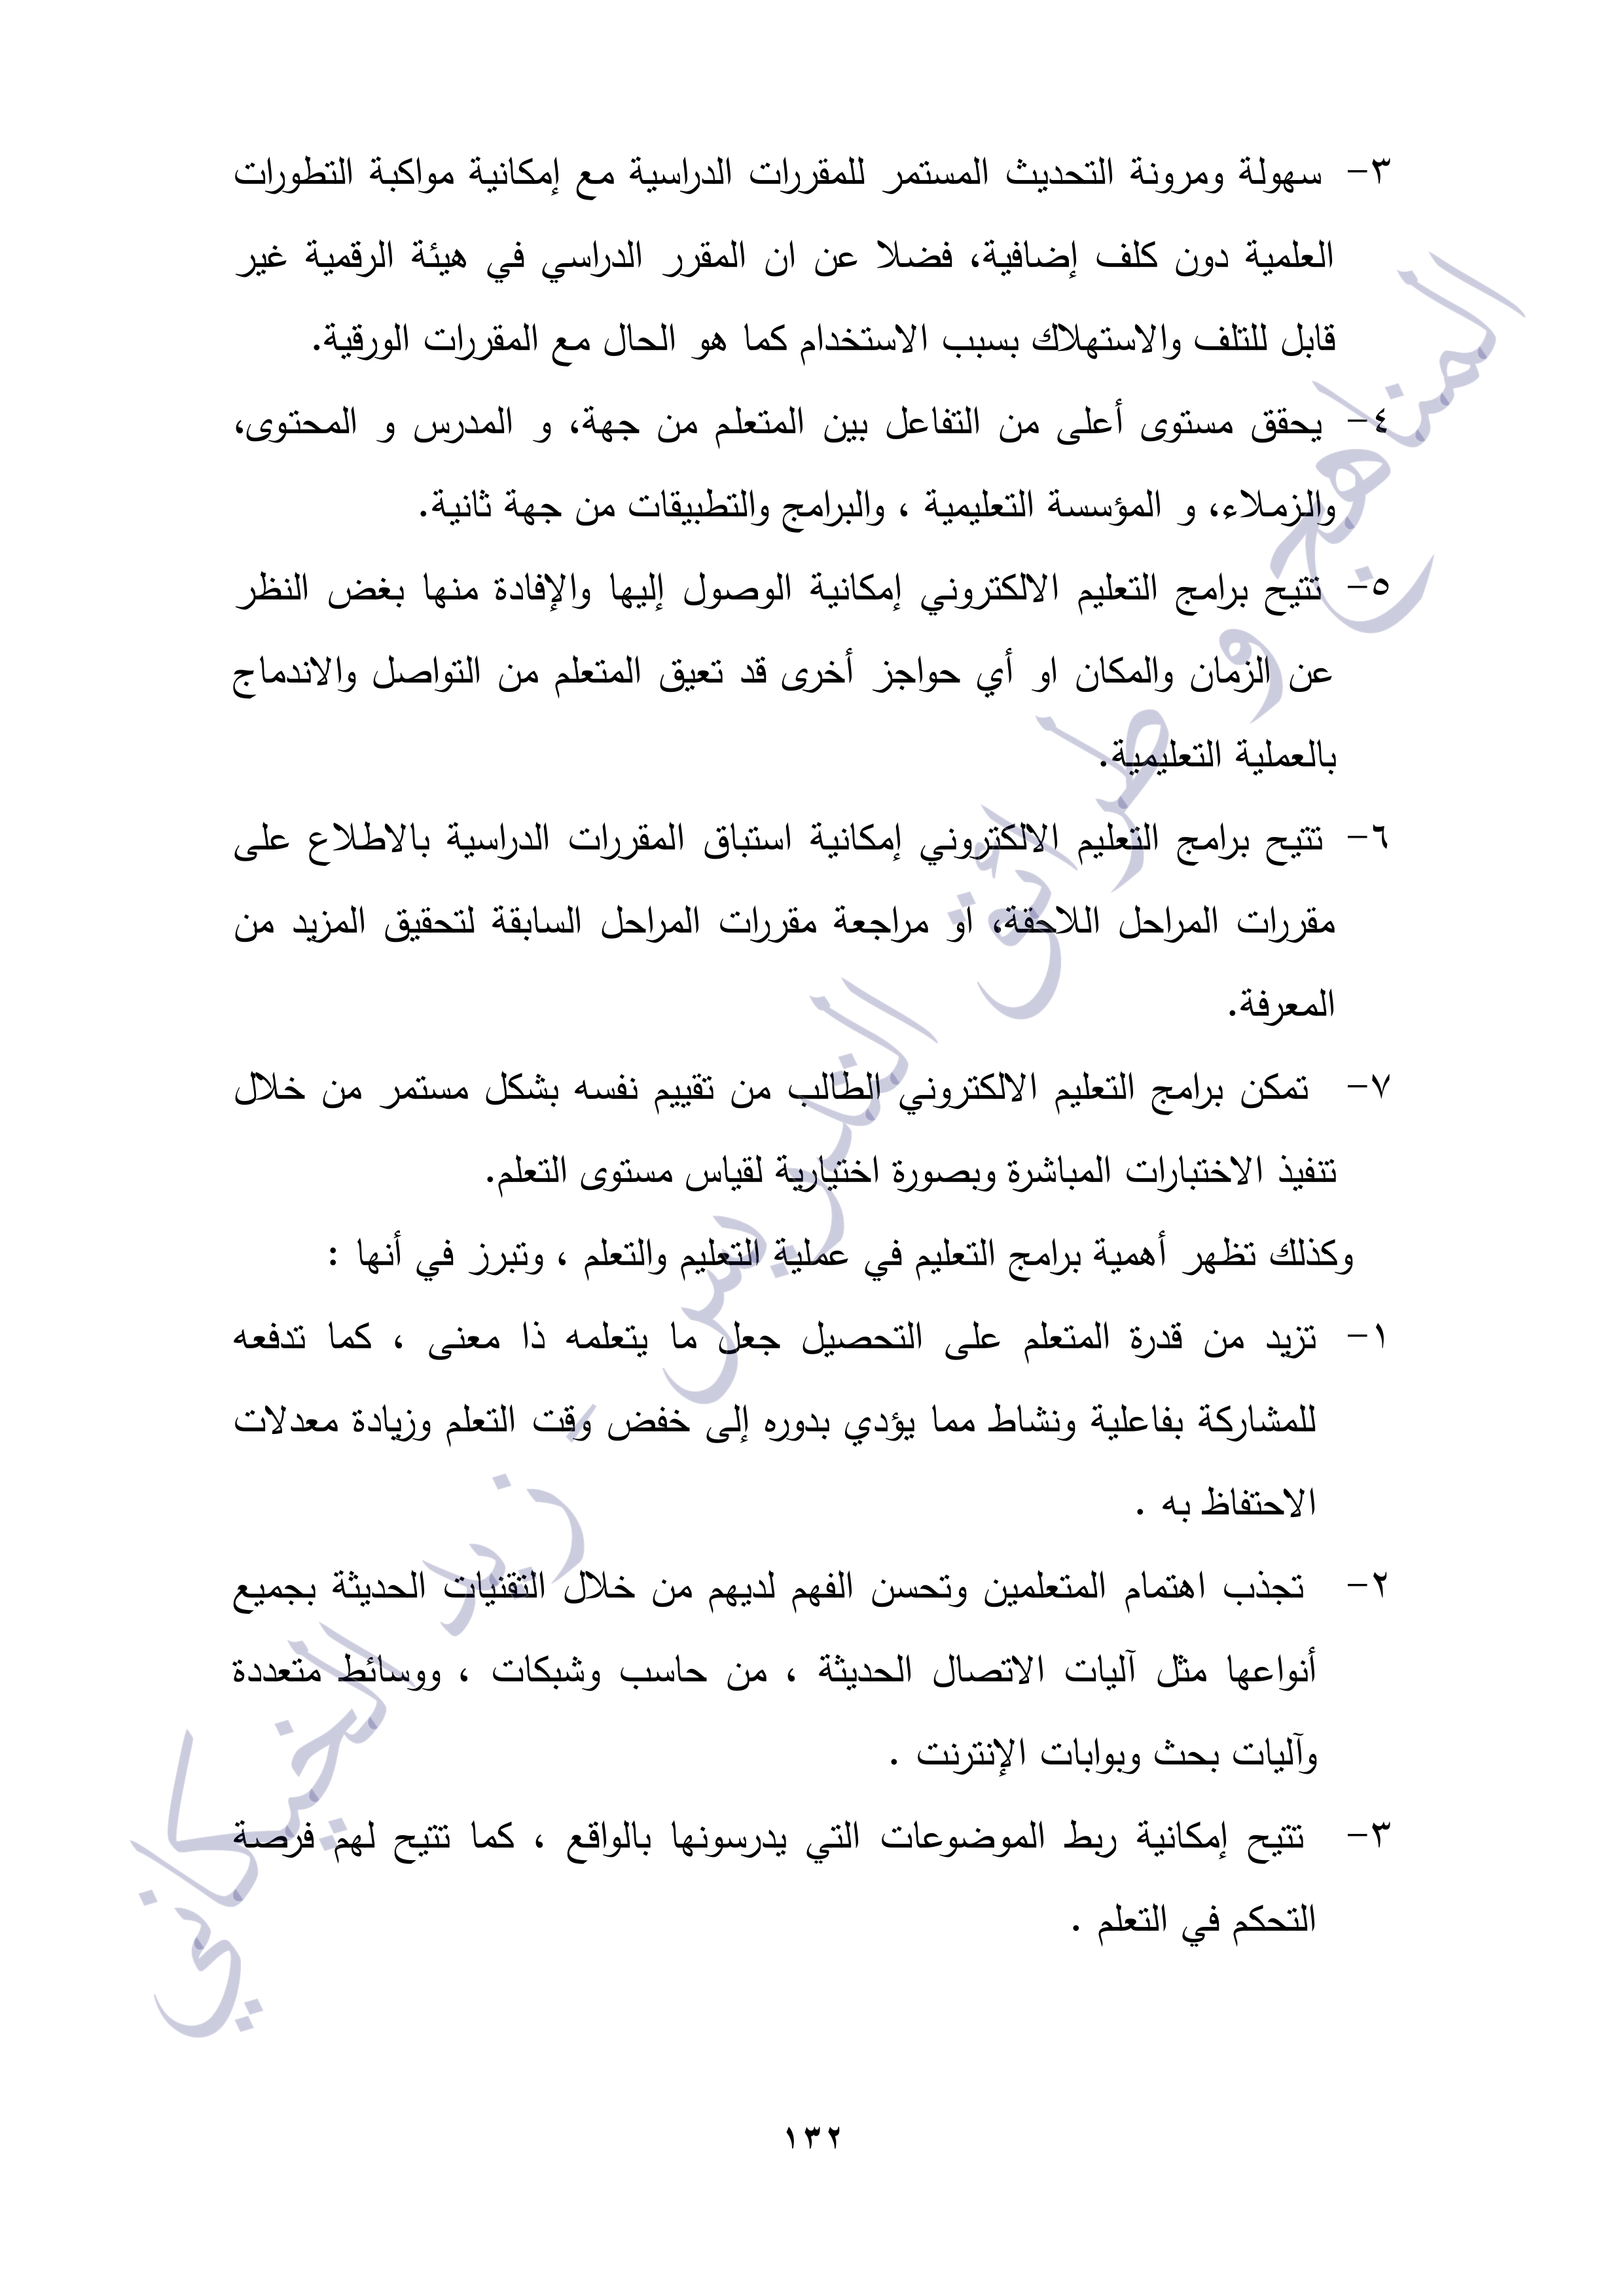 ٣- سهولة ومرونة التحديث المستمر للمقررات الدراسية مع إمكانية مواكبة التطورات
العلمية دون كلف إضافية، فضلا عن ان المقرر الدراسي في هيئة الرقمية غير
قابل للتلف والاستهلاك بسبب الاستخدام كما هو الحال مع المقررات الورقية.
٤- يحقق مستوى أعلى من التفاعل بين المتعلم من جهة، و المدرس و المحتوى،
والزملاء، و المؤسسة التعليمية ، والبرامج والتطبيقات من جهة ثانية.
٥- تتيح برامج التعليم الالكتروني إمكانية الوصول إليها والإفادة منها بغض النظر
عن الزمان والمكان او أي حواجز أخرى قد تعيق المتعلم من التواصل والاندماج
بالعملية التعليمية.
٦- تتيح برامج التعليم الالكتروني إمكانية استباق المقررات الدراسية بالاطلاع على
مقررات المراحل اللاحقة، او مراجعة مقررات المراحل السابقة لتحقيق المزيد من
المعرفة.
٧- تمكن برامج التعليم الالكتروني الطالب من تقييم نفسه بشكل مستمر من خلال
تنفيذ الاختبارات المباشرة وبصورة اختيارية لقياس مستوى التعلم.
وكذلك تظهر أهمية برامج التعليم في عملية التعليم والتعلم ، وتبرز في أنها :
١- تزيد من قدرة المتعلم على التحصيل جعل ما يتعلمه ذا معنى ، كما تدفعه
للمشاركة بفاعلية ونشاط مما يؤدي بدوره إلى خفض وقت التعلم وزيادة معدلات
الاحتفاظ به .
٢- تجذب اهتمام المتعلمين وتحسن الفهم لديهم من خلال التقنيات الحديثة بجميع
أنواعها مثل آليات الاتصال الحديثة ، من حاسب وشبكات ، ووسائط متعددة
وآليات بحث وبوابات الإنترنت .
٣- تتيح إمكانية ربط الموضوعات التي يدرسونها بالواقع ، كما تتيح لهم فرصة
التحكم في التعلم .
المناهج و طرائق التدريس - زيد الخيكاني
١٣٢